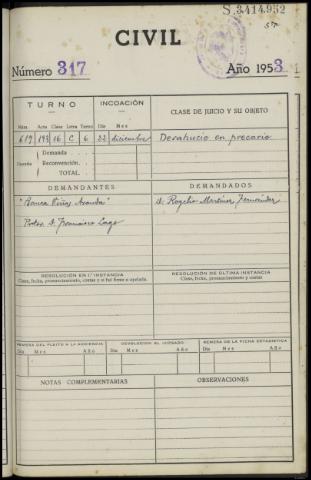 S.3414.952
CIVIL
Número 317 Año 1953
TURNO INCOACIÓN CLASE DE JUICIO Y SU OBJETO
Núm. Acta Clase Letra Turno Día Mes
619 193 16 C 6 22 diciembre Desahucio en precario
Demanda
Cuantía Reconvención.
TOTAL.
DEMANDANTES DEMANDADOS
D. Rogelio Martínez Fernández
Francisco Lago
RESOLUCIÓN EN 1.ª INSTANCIA RESOLUCIÓN DE ÚLTIMA INSTANCIA
Clase, fecha, pronunciamiento, costas y si fué firme o apelada. Clase, fecha, pronunciamiento y costas
REMESA DEL PLEITO A LA AUDIENCIA DEVOLUCIÓN AL JUZGADO REMESA DE LA FICHA ESTADÍSTICA
Día Mes Año Día Mes Año Día Mes Año
NOTAS COMPLEMENTARIAS OBSERVACIONES